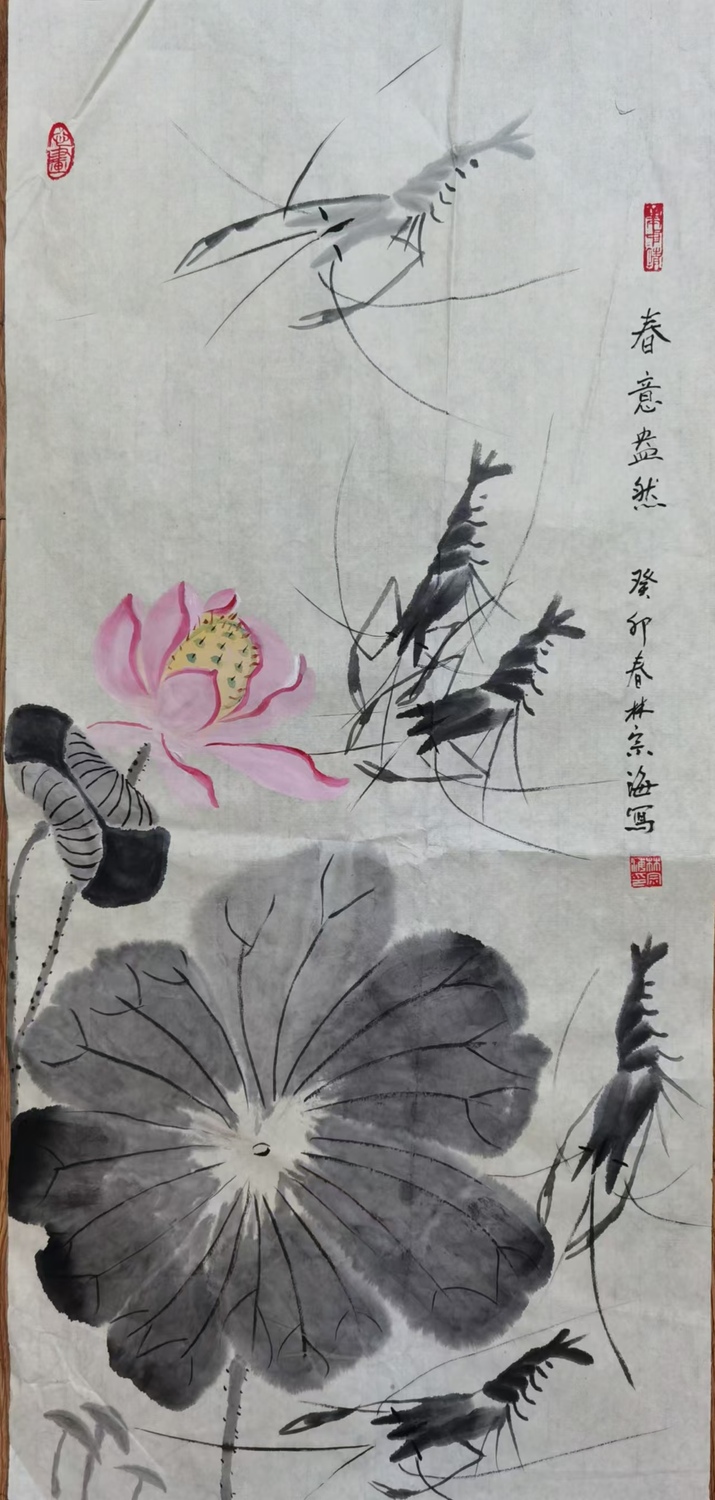 春意盎然 癸卯春林宗海写